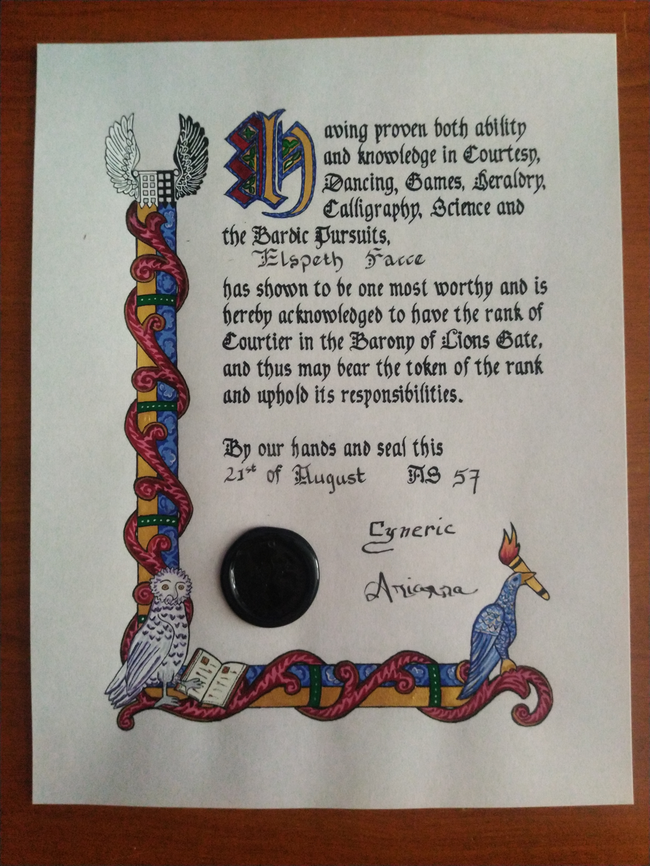 Having proven both ability
and knowledge in Courtesy,
Dancing, Games, Heraldry,
Calligraphy, Science and
the Bardic Pursuits,
Elspeth Facce
has shown to be one most worthy and is
hereby acknowledged to have the rank of
Courtier in the Barony of Lions Gate,
and thus may bear the token of the rank
and uphold its responsibilities.
By our hands and seal this
21st of August AS 57
Cyneric
Arianna